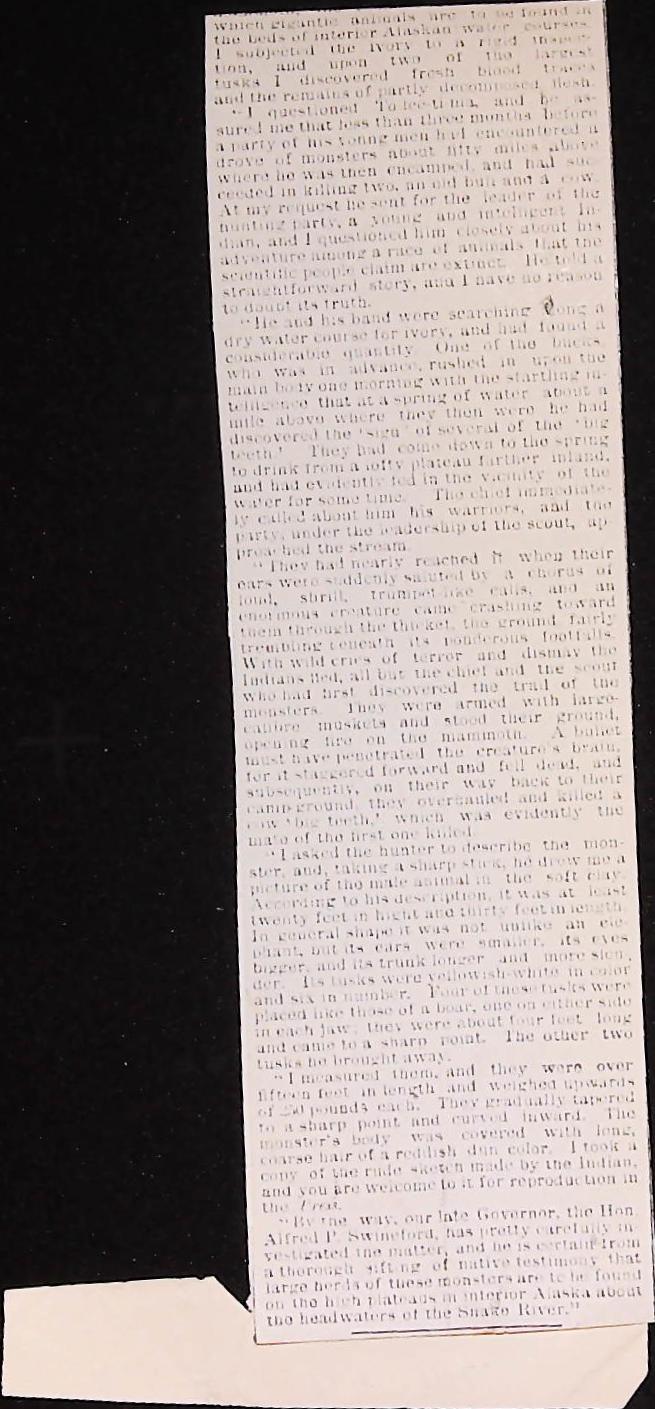 which gigantic animals are to be found in
the beds of interior Alaskan water courses.
I subjected the ivory to a rigid inspec-
tion, and upon two of the largest
tusks I discovered fresh blood traces
and the remains of partly decomposed flesh.
"I questioned and he as-
sured me that less than three months before
a party of his young men had encountered a
drove of monsters about fifty miles above
where he was then encamped, and had suc-
ceeded in killing two, an old bull and a cow.
At my request he sent for the leader of the
hunting party, a young and intelligent In-
dian, and I questioned him closely about his
adventure among a race of animals that the
scientific people claim are extinct. He told a
straightforward story, and I have no reason
to doubt its truth.
"He and his band were searching along a
dry water course for ivory, and had found a
considerable quantity. One of the bucks,
who was in advance, rushed in upon the
main body one morning with the startling in-
telligence that at a spring of water about a
mile above where they then were he had
discovered the 'sign' of several of the 'big
teeth.' They had come down to the spring
to drink from a lofty plateau farther inland,
and had evidently fed in the vicinity of the
water for some time. The chief immediate-
ly called about him his warriors, and the
party, under the leadership of the scout, ap-
proached the stream.
"They had nearly reached it when their
ears were suddenly saluted by a chorus of
loud, shrill, trumpet-like calls, and an
enormous creature came crashing toward
them through the thicket, the ground fairly
trembling beneath its ponderous footfalls.
With wild cries of terror and dismay the
Indians fled, all but the chief and the scout
who had first discovered the trail of the
monsters. They were armed with large-
calibre muskets and stood their ground,
opening fire on the mammoth. A bullet
must have penetrated the creature's brain,
for it staggered forward and fell dead, and
subsequently, on their way back to their
campground, they overhauled and killed a
cow 'big teeth,' which was evidently the
mate of the first one killed.
"I asked the hunter to describe the mon-
ster, and, taking a sharp stick, he drew me a
picture of the male animal in the soft clay.
According to his description, it was at least
twenty feet in hight and thirty feet in length.
In general shape it was not unlike an ele-
phant, but its ears were smaller, its eyes
bigger, and its trunk longer and more slen-
der. Its tusks were yellowish-white in color
and six in number. Four of these tusks were
placed like those of a boar, one on either side
in each jaw; they were about four feet long
and came to a sharp point. The other two
tusks he brought away.
"I measured them, and they were over
fifteen feet in length and weighed upwards
of 250 pounds each. They gradually tapered
to a sharp point and curved inward. The
monster's body was covered with long,
coarse hair of a reddish dun color. I took a
copy of the rude sketch made by the Indian,
and you are welcome to it for reproduction in
the Press.
"By the way, our late Governor, the Hon.
Alfred P. Swineford, has pretty carefully in-
vestigated the matter, and he is certain from
a thorough sifting of native testimony that
large herds of these monsters are to be found
on the high plateaus in interior Alaska about
the headwaters of the Snake River."